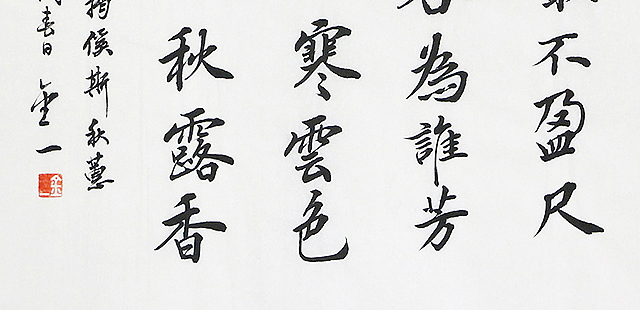 不盈尺
為誰芳
寒雲色
秋露香
揭傒斯秋蕙
春日金一